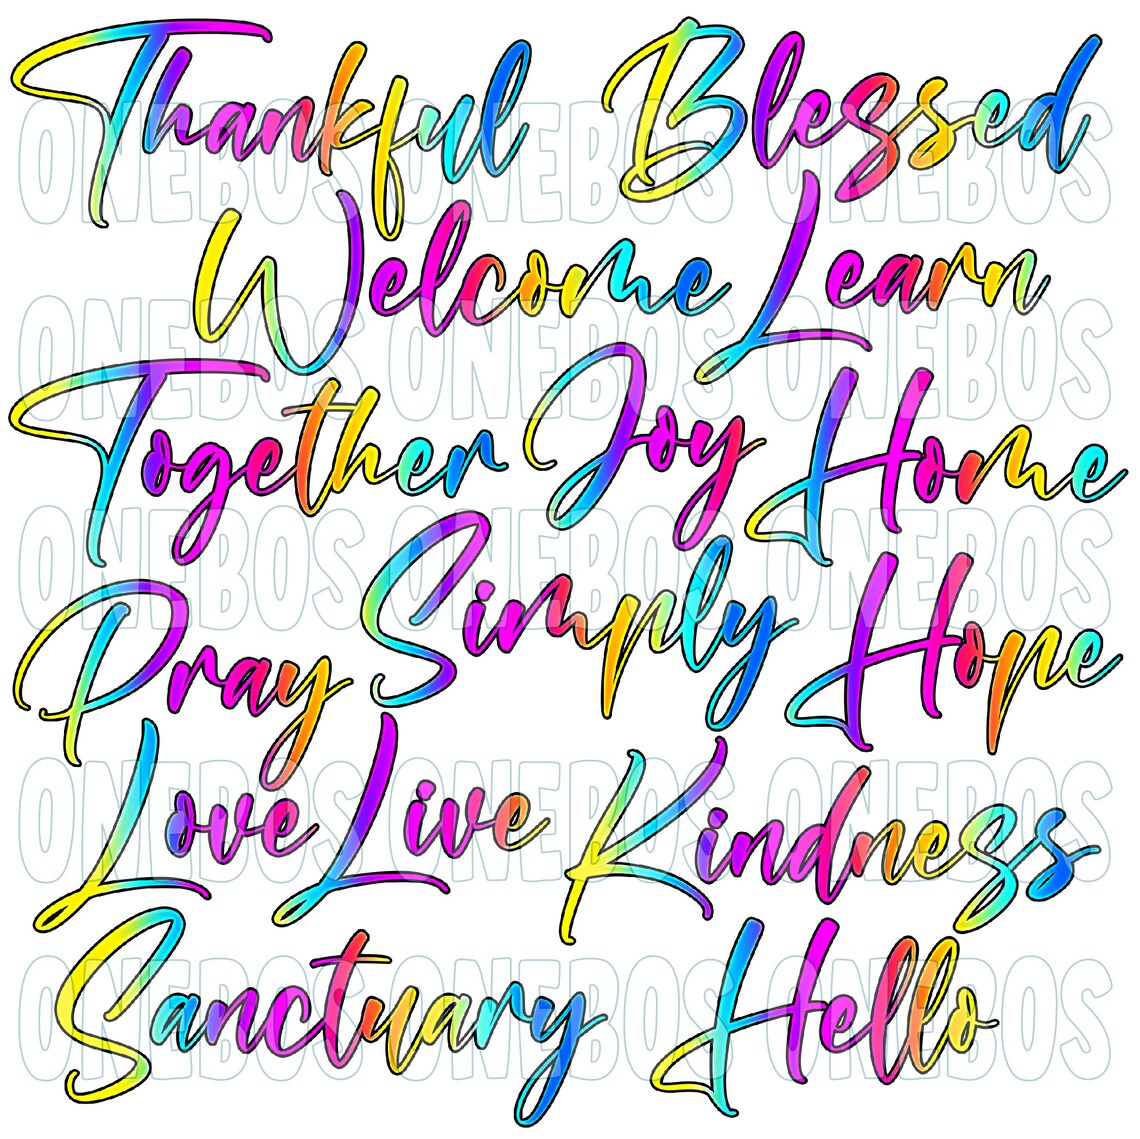 Thankful Blessed
ONEBOS ONEBOS ONEBOS
Welcome Learn
ONEBOS ONEBOS ONEBOS
Together Joy Home
ONEBOS ONEBOS ONEBOS
Pray Simply Hope
Love Live Kindness
ONEBOS ONEBOS ONEBOS
Sanctuary Hello
ONEBOS ONEBOS ONEBOS